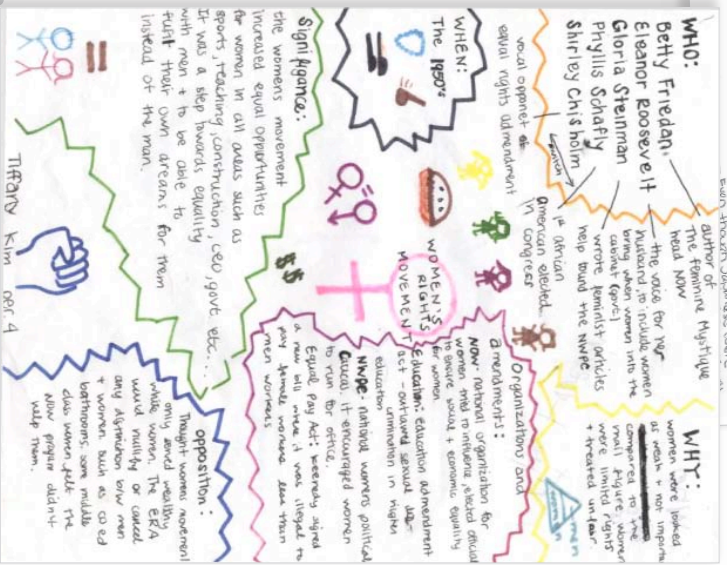 WHO:
Betty Friedan
Eleanor Roosevelt
Gloria Steinman
Phyllis Schafly
Shirley Chisholm
author of
The Feminine Mystique
head NOW
the voice for her
husband, to include women
bring when women into the
cabinet (govt.)
wrote feminist articles
help found the NWPC
switch
1st african
american elected
in congress
vocal opponet of
equal rights admendment
WHY:
women were looked
as weak + not importa
compared to the
male figure. women
were limited rights
+ treated unfair.
men
women
WHEN:
The 1950's
WOMEN'S
RIGHTS
MOVEMENT
$$
Organizations and
amendments:
NOW- national organization for
women tried to influence elected official
to ensure social + economic equality
for women
Education: education admendment
act - outlawed sexual dis-
crimination in higher
education
NWPC- national womens political
Caucus. it encouraged women
to run for office.
Equal Pay Act: kennedy signed
a new bill where it was illegal to
pay female workers less than
men workers
Signifigance:
the womens movement
increased equal opportunities
for women in all areas such as
sports, teaching, construction, ceo, govt. etc...
It was a step towards equality
with men + to be able to
fulfil their own dreams for them
instead of the man.
=
opposition:
Thought womens movement
only served wealthy
white women. The ERA
would nullify or cancel
any distinction b/w men
+ women such as co ed
bathrooms. some middle
class women felt the
NOW program didn't
help them.
Tiffany Kim per. 4